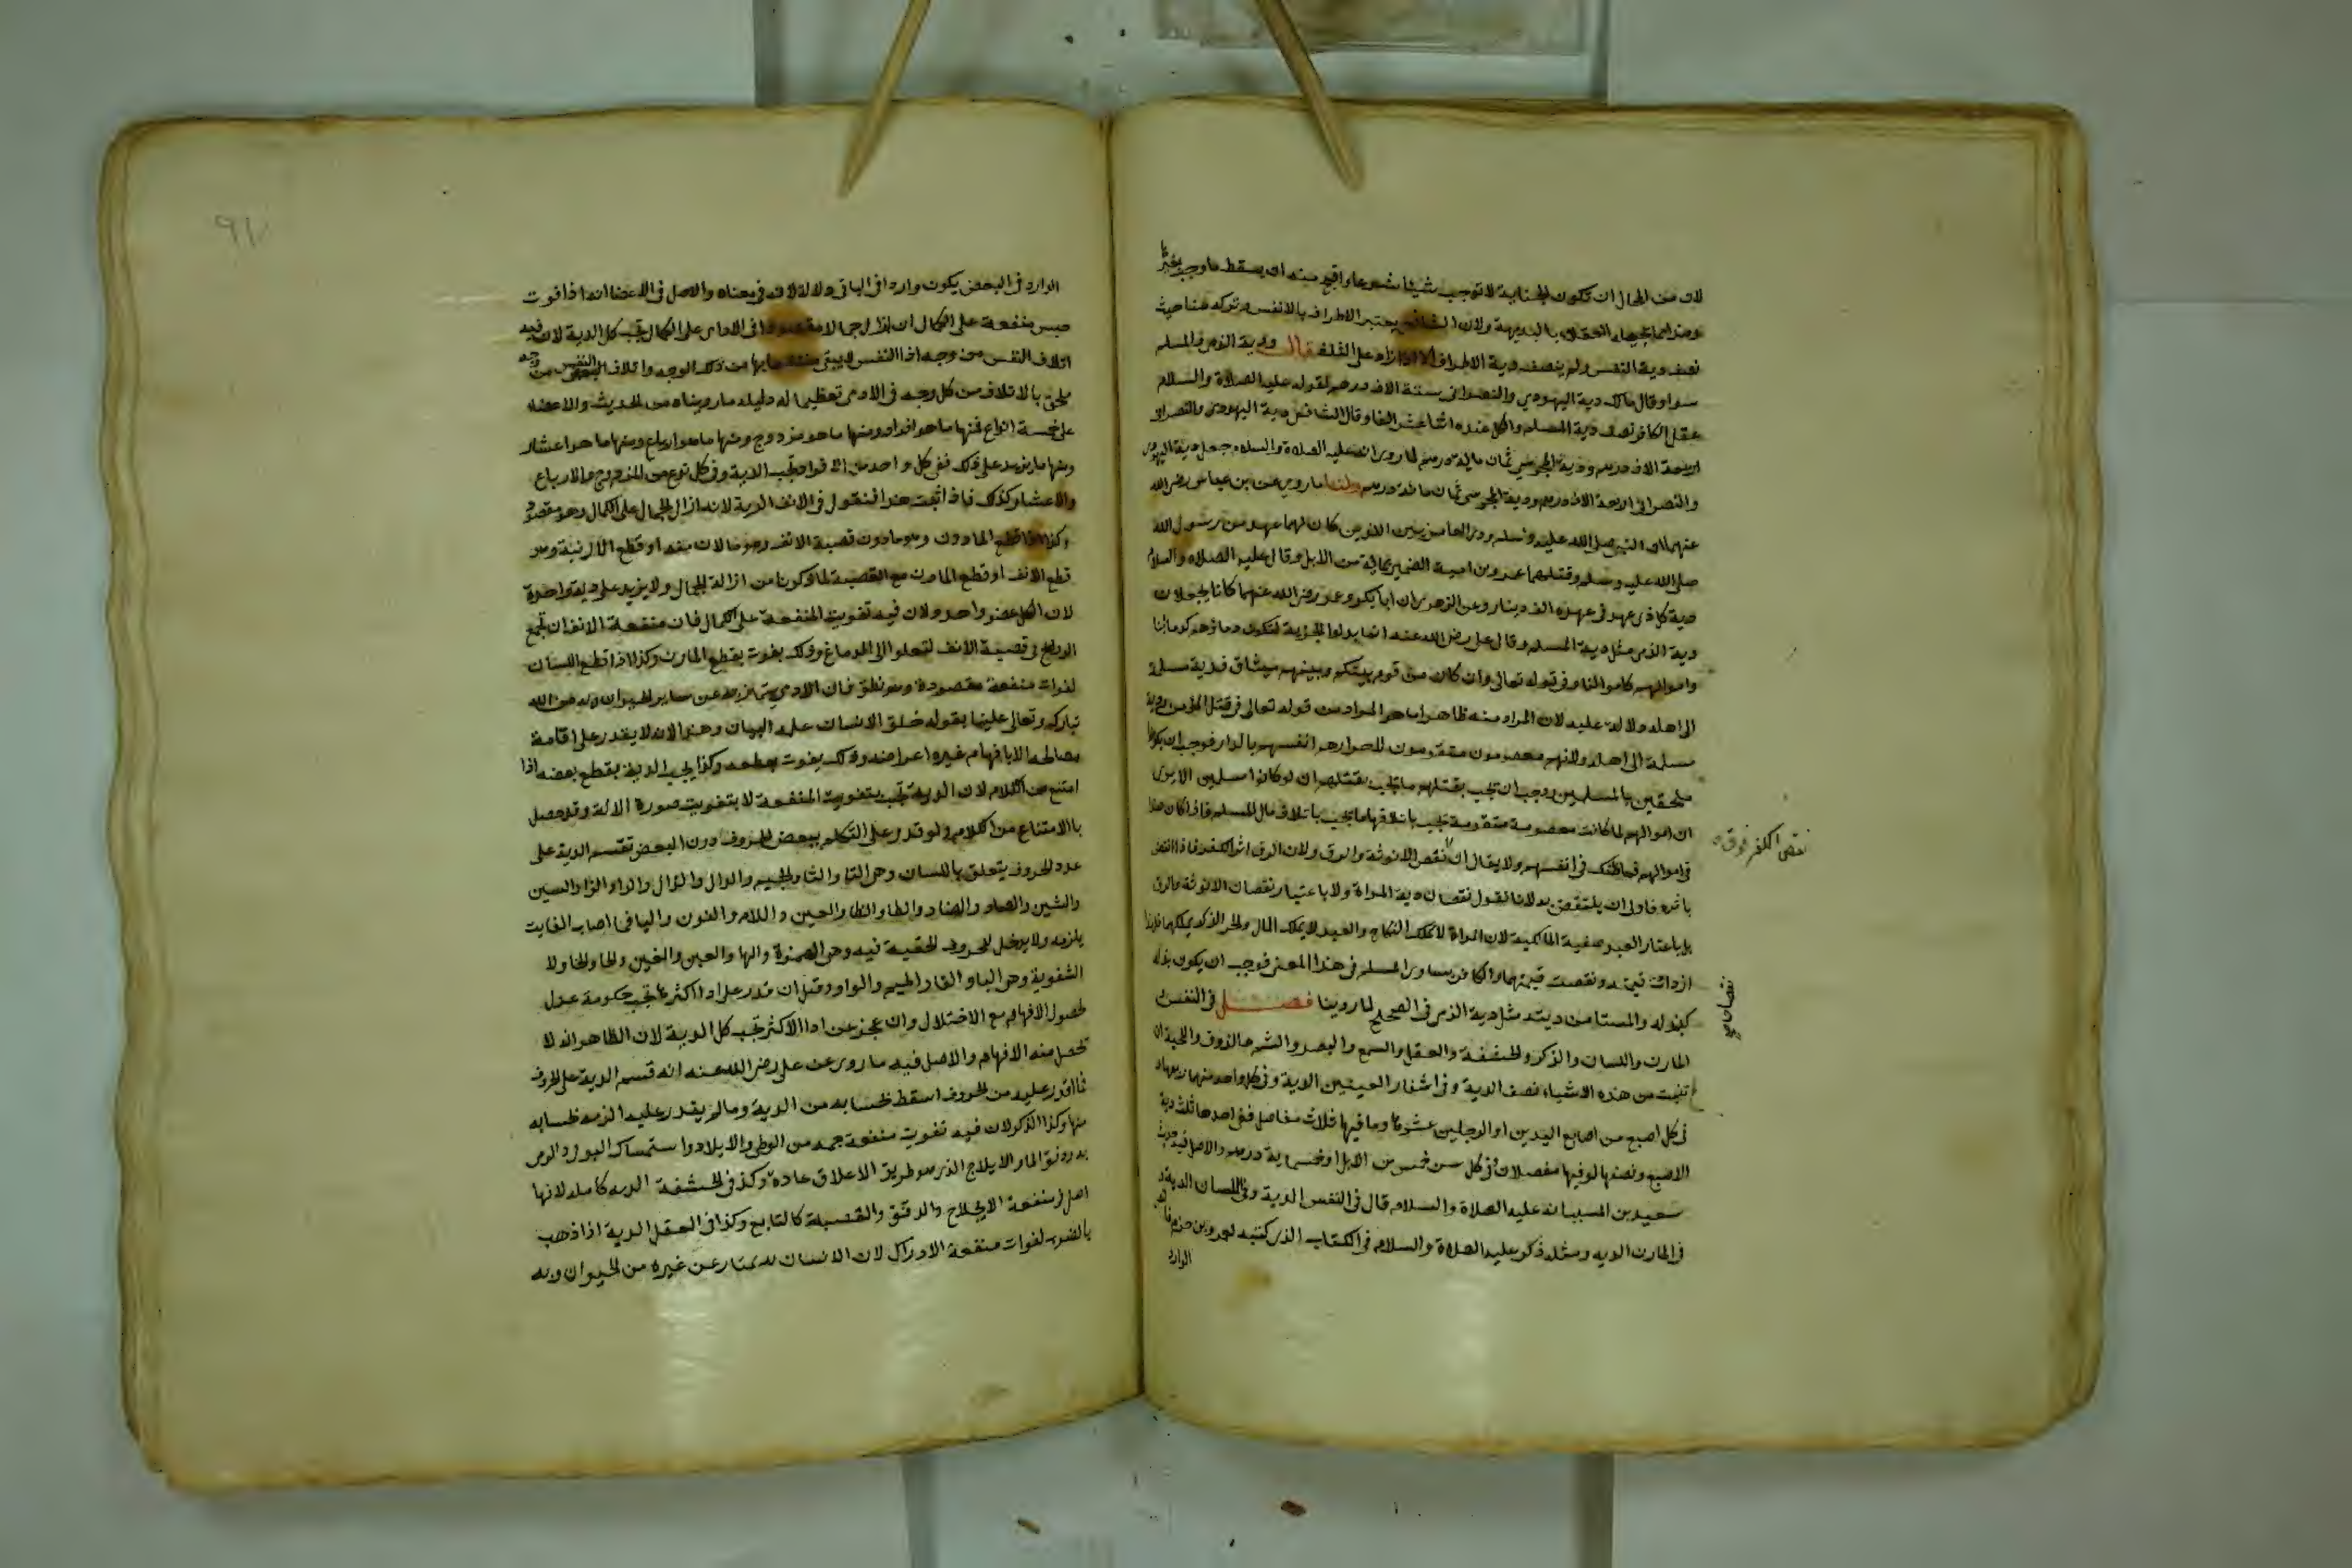 لان من المحال ان تكون الجناية لا توجب شيئا شرعا واقبح منه ان يسقط ما وجب بغيرها
وهذا مما تحيله العقلا بالبديهة ولان الشافعي يعتبر الاطراف بالانفس وتركه هنا حيث
نصف دية النفس ولم ينصف دية الاطراف الا اذا زاد على الثلث قال ودية الذمي والمسلم
سوا وقال مالك دية اليهودي والنصراني ستة الاف درهم لقوله عليه الصلاة والسلام
عقل الكافر نصف دية المسلم والكل عنده اثنا عشر الفا وقال الشافعي دية اليهودي والنصراني
اربعة الاف درهم ودية المجوسي ثمان ماية درهم لما روي انه عليه الصلاة والسلام جعل دية اليهودي
والنصراني اربعة الاف درهم ودية المجوسي ثمان مائة درهم ولنا ما روي عن بن عباس رضي الله
عنهما ان النبي صلى الله عليه وسلم ودى العامريين الذين كان لهما عهد من رسول الله
صلى الله عليه وسلم وقتلهما عمرو بن امية الضمري بماية من الابل وقال عليه الصلاة والسلام
دية كل ذي عهد في عهده الف دينار وعن الزهري ان ابا بكر وعمر رضي الله عنهما كانا يجعلان
دية الذمي مثل دية المسلم وقال علي رضي الله عنه انما بذلوا الجزية لتكون دماؤهم كدمائنا
واموالهم كاموالنا وفي قوله تعالى وان كان من قوم بينكم وبينهم ميثاق فدية مسلمة
الى اهله دلالة عليه لان المراد منه ظاهرا ما هو المراد من قوله تعالى في قتل المؤمن ودية
مسلمة الى اهله ولانهم معصومون متقومون لاحرازهم انفسهم بالدار فوجب ان يكونوا
ملحقين بالمسلمين وجب ان يجب بقتلهم ما يجب بقتلهم ان لو كانوا مسلمين الا يرى
ان اموالهم لما كانت معصومة متقومة يجب باتلافها ما يجب باتلاف مال المسلم فاذا كان هذا
في اموالهم فما ظنك في انفسهم ولا يقال ان نقص الانوثة والرق ولان الرق اثر الكفر فاذا انتقص
باثره فاولى ان ينتقص به لانا نقول نقصان دية المراة لا باعتبار نقصان الانوثة والرق
بل باعتبار صفة المالكية لان المراة لا تملك النكاح والعبد لا يملك المال والحر الذكر يملكهما فلهذا
ازدادت قيمته ونقصت قيمتهما والكافر يساوي المسلم في هذا المعنى فوجب ان يكون بدله
كبدله والمستامن ديته مثل دية الذمي في الصحيح لما روينا فصل في النفس
المارن واللسان والذكر والحشفة والعقل والسمع والبصر والشم والذوق واللحية ان
تنبت من هذه الاشياء نصف الدية وفي اشفار العينين الدية وفي كل واحد منهما ربعها و
في كل اصبع من اصابع اليدين او الرجلين عشرها وما فيها ثلاث مفاصل ففي احدها ثلث دية
الاصبع ونصفها لو فيها مفصلان وفي كل سن خمس من الابل او خمسماية درهم والاصل فيه حديث
سعيد بن المسيب انه عليه الصلاة والسلام قال في النفس الدية وفي اللسان الدية و
في المارن الدية ومثله ذكر عليه الصلاة والسلام في الكتاب الذي كتبه لعمرو بن حزم
الوارد
نقص الكفر فوق
الوارد في البعض يكون واردا في الباقي دلالة لانه في معناه والاصل في الاعضا انه اذا فوت
جنس منفعة على الكمال او ازال جمالا مقصودا في الادمي على الكمال تجب كل الدية لان فيه
اتلاف النفس من وجه اذ النفس لا يبقى منتفعا بها من ذلك الوجه واتلاف النفس من وجه
ملحق بالاتلاف من كل وجه في الادمي تعظيما له دليله ما رويناه من الحديث والاعضاء
على خمسة انواع فمنها ما هو افراد ومنها ما هو مزدوج ومنها ما هو ارباع ومنها ما هو اعشار
ومنها ما يزيد على ذلك ففي كل واحد من الافراد تجب الدية وفي كل نوع من المزدوج والارباع
والاعشار كذلك فاذا ثبت هذا فنقول في الانف الدية لانه ازال الجمال على الكمال وهو مقصود
وكذا اذا قطع المارن وهو ما دون قصبة الانف وهو ما لان منه او قطع الارنبة وهو
قطع الانف او قطع المارن مع القصبة لما ذكرنا من ازالة الجمال ولا يزيد على دية واحدة
لان الكل عضو واحد ولان فيه تفويت المنفعة على الكمال فان منفعة الانف ان تجتمع
الروايح في قصبة الانف لتعلوا الى الدماغ وذلك يفوت بقطع المارن وكذا اذا قطع اللسان
لفوات منفعة مقصودة وهو نطق فان الادمي يتميز به عن ساير الحيوان وبه من الله
تبارك وتعالى علينا بقوله خلق الانسان علمه البيان وهذا لانه لا يقدر على اقامة
مصالحه الا بافهام غيره اغراضه وذلك يفوت بقطعه وكذا يجب الدية بقطع بعضه اذا
امتنع من الكلام لان الدية تجب بتفويت المنفعة لا بتفويت صورة الالة وقد حصل
بالامتناع من الكلام ولو قدر على التكلم ببعض الحروف دون البعض تقسم الدية على
عدد الحروف يتعلق باللسان وهي التا والثا والجيم والدال والذال والراء والزا والسين
والشين والصاد والضاد والطا والظا والعين واللام والنون واليا فما اصاب الفايت
يلزمه ولا يدخل الحروف الحلقية فيه وهي الهمزة والها والعين والغين والحا والخا ولا
الشفوية وهي البا والفا والميم والواو وقيل ان قدر على ادا اكثرها تجب حكومة عدل
لحصول الافهام مع الاختلال وان عجز عن ادا الاكثر تجب كل الدية لان الظاهر انه لا
تحصل منه الافهام والاصل فيه ما روي عن علي رضي الله عنه انه قسم الدية على الحروف
فما قدر عليه من الحروف اسقط بحسابه من الدية وما لم يقدر عليه الزمه بحسابه
منها وكذا الذكر لان فيه تفويت منفعة جمة من الوطي والايلاد واستمساك البول والرمي
به ودفق الما والايلاج الذي هو طريق الاعلاق عادة وكذ في الحشفة الدية كاملة لانها
اصل في منفعة الايلاج والدفق والقصبة كالتابع وكذا في العقل الدية اذا ذهب
بالضرب لفوات منفعة الادراك لان الانسان به يمتاز عن غيره من الحيوان وبه